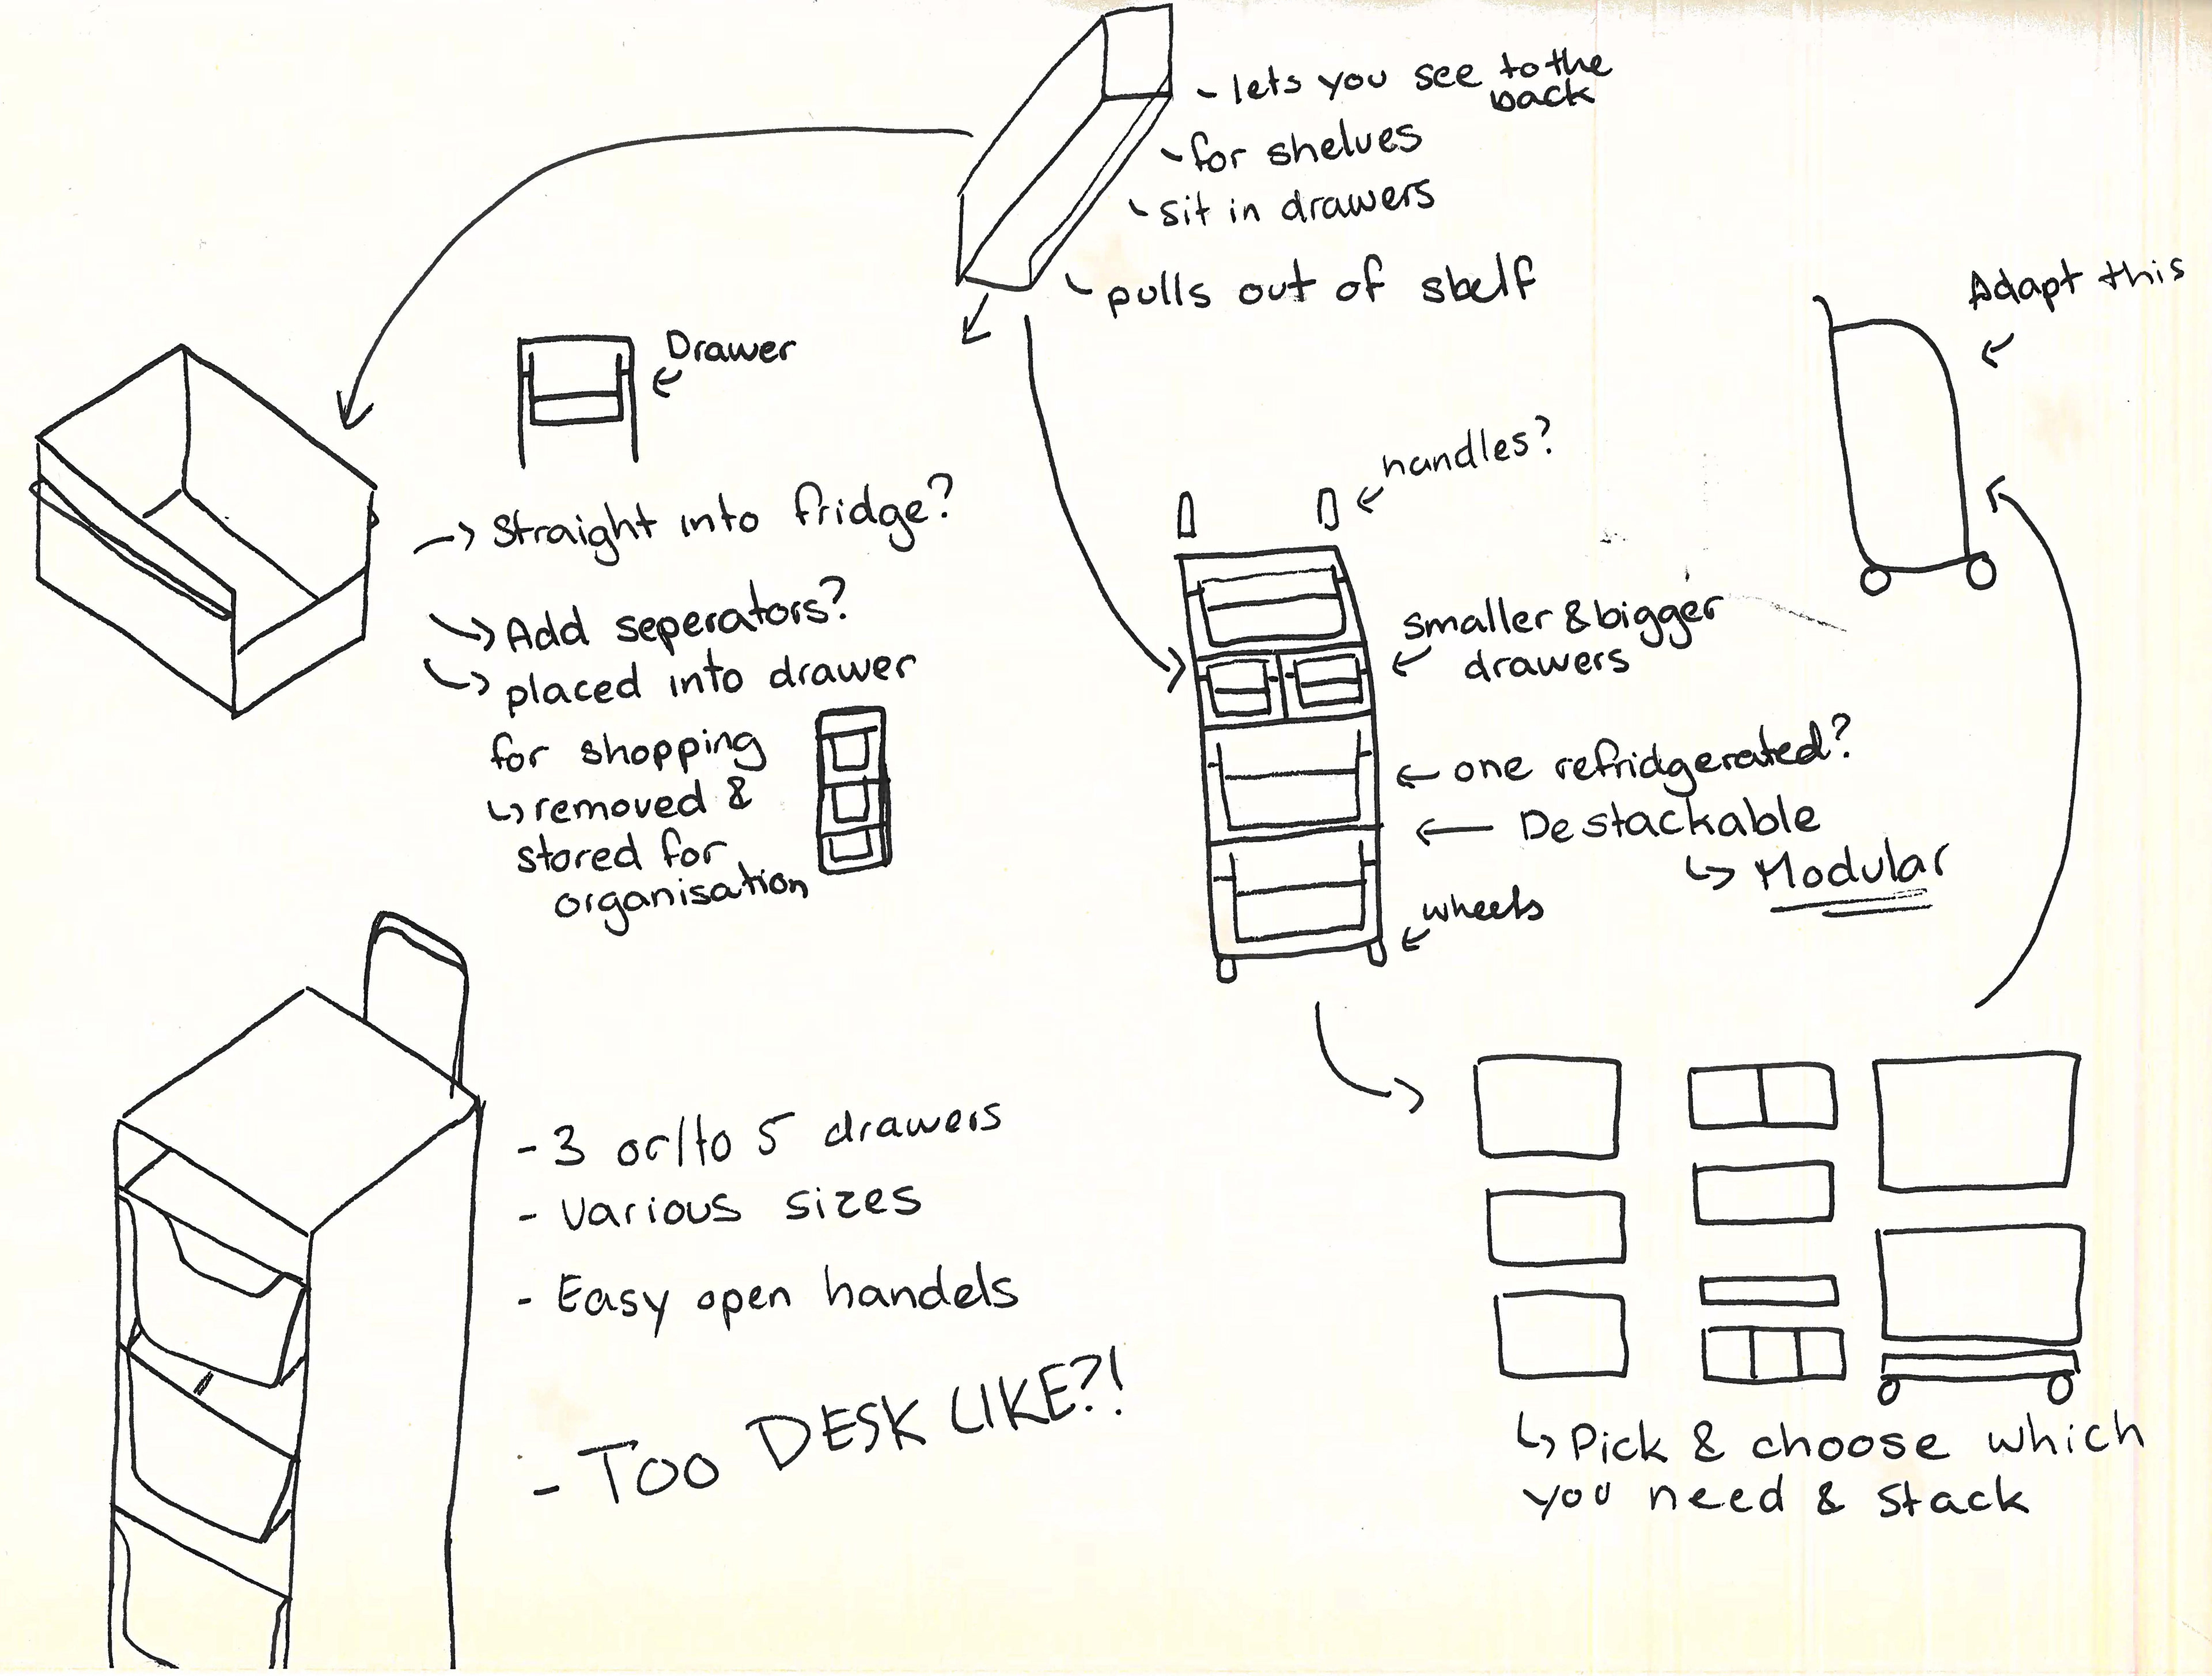 - lets you see to the
back
- for shelves
- sit in drawers
- pulls out of shelf
Adapt this
Drawer
handles?
→ Straight into fridge?
↳ Add seperators?
↳ placed into drawer
for shopping
↳ removed &
stored for
organisation
smaller & bigger
drawers
← one refridgerated?
← Destackable
↳ Modular
wheels
- 3 or/to 5 drawers
- Various sizes
- Easy open handels
- TOO DESK LIKE?!
↳ Pick & choose which
you need & stack